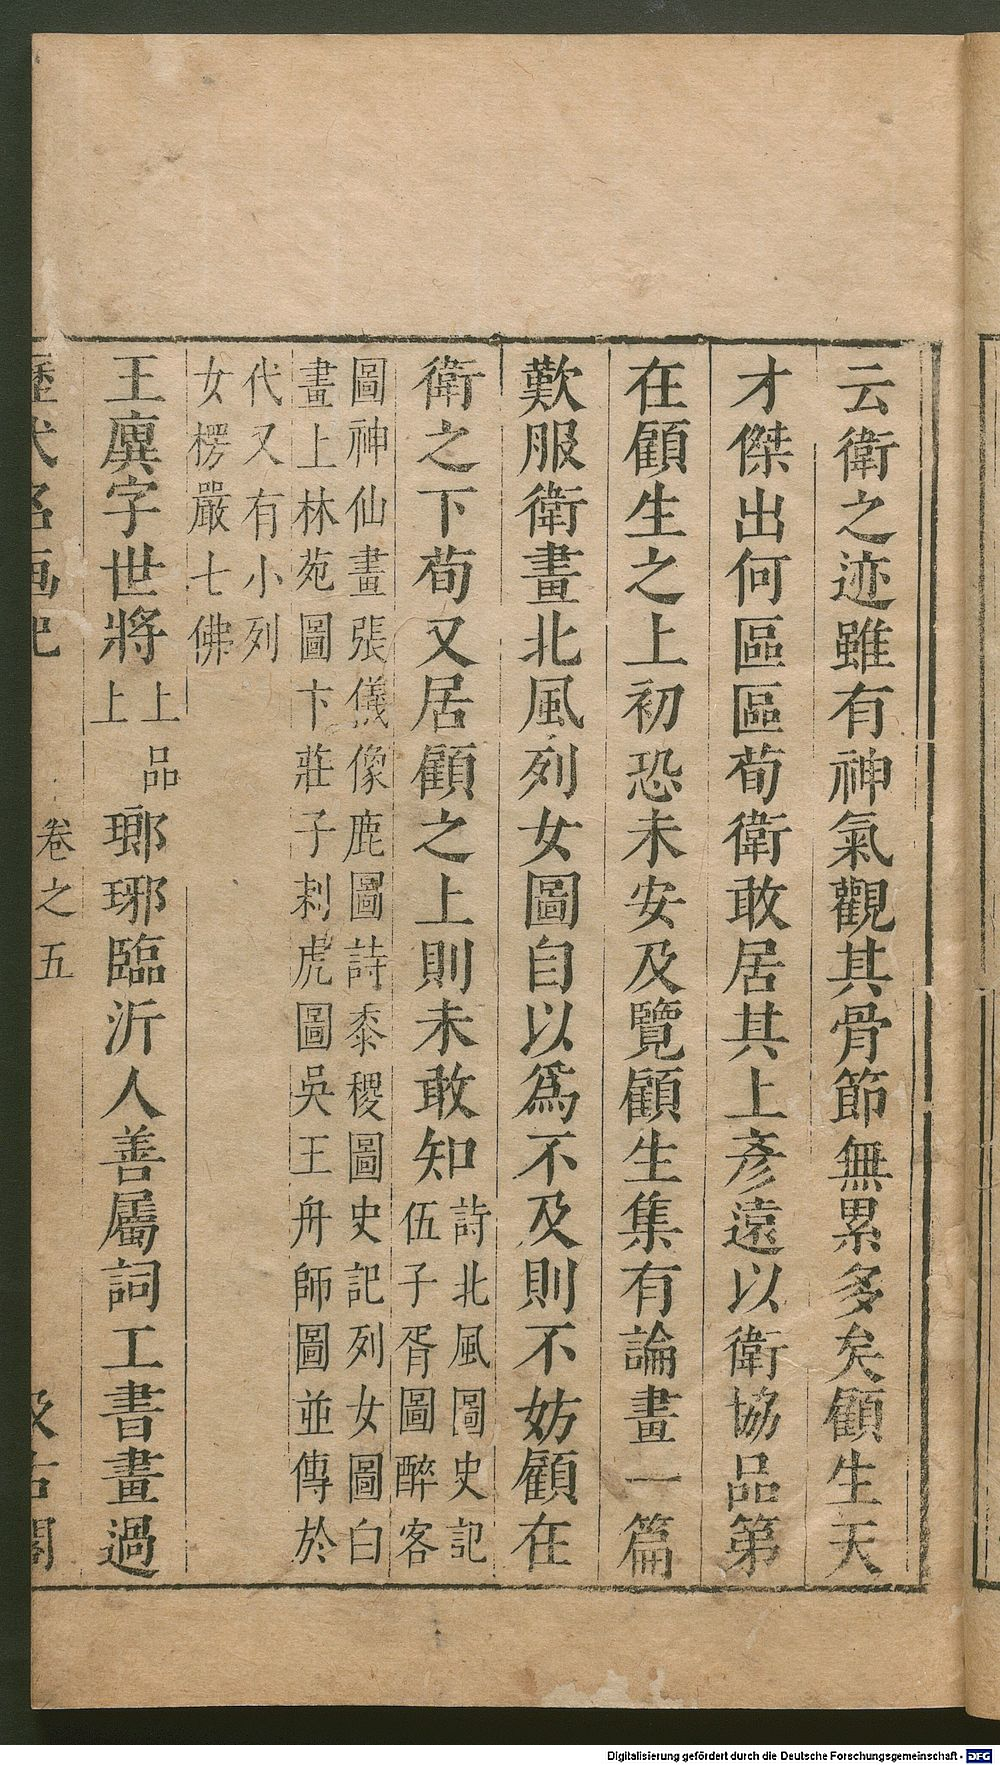 云衛之迹雖有神氣觀其骨節無累多矣顧生天
才傑出何區區荀衛敢居其上彥遠以衛協品第
在顧生之上初恐未安及覽顧生集有論畫一篇
歎服衛畫北風列女圖自以為不及則不妨顧在
衛之下荀又居顧之上則未敢知
詩北風圖史記
伍子胥圖醉客
圖神仙畫張儀像鹿圖詩黍稷圖史記列女圖白
畫上林苑圖卞莊子刺虎圖吳王舟師圖並傳於
代又有小列
女楞嚴七佛
王廙字世將
上品
上
瑯琊臨沂人善屬詞工書畫過
歷代名画记 卷之五 汲古閣
Digitalisierung gefördert durch die Deutsche Forschungsgemeinschaft - DFG